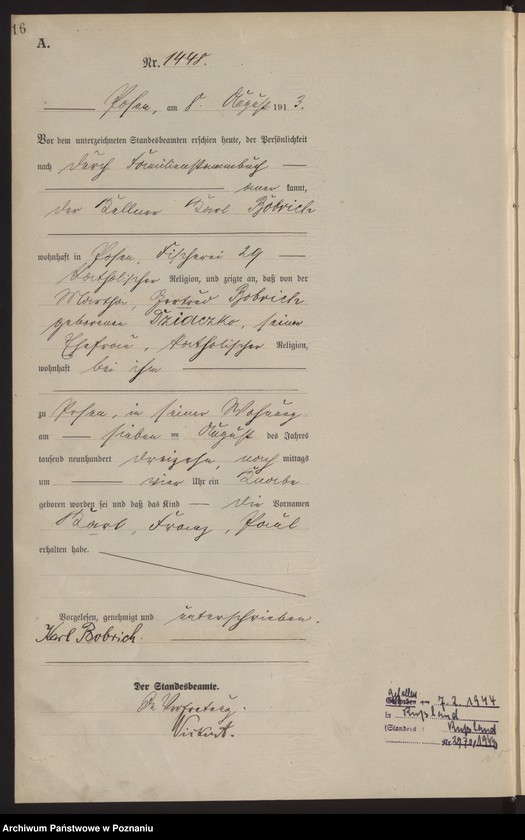 16
A.
Nr. 1448.
Posen, am 8. August 1913.
Vor dem unterzeichneten Standesbeamten erschien heute, der Persönlichkeit
nach durch Familienstammbuch
kannt,
der Kellner Karl Bobrich
wohnhaft in Posen, Fischerei 29
katholischer Religion, und zeigte an, daß von der
Martha, Gertrud Bobrich
geborenen Dziaczko, seiner
Ehefrau, katholischer Religion,
wohnhaft bei ihm
zu Posen, in seiner Wohnung
am sieben ten August des Jahres
tausend neunhundert dreizehn, nach mittags
um vier Uhr ein Knabe
geboren worden sei und daß das Kind die Vornamen
Karl, Franz, Paul
erhalten habe.
Vorgelesen, genehmigt und unterschrieben.
Karl Bobrich.
Der Standesbeamte.
In Vertretung.
Gefallen
am 7.2.1944
in Rußland
(Standesa Rußland
Nr.
Archiwum Państwowe w Poznaniu